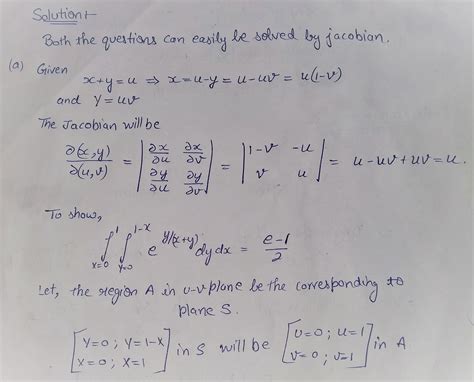 Solution:-
Both the questions can easily be solved by jacobian.
(a) Given
x+y=u ⇒ x=u-y=u-uv= u(1-v)
and y=uv
The Jacobian will be
∂(x,y)/∂(u,v) = |∂x/∂u ∂x/∂v; ∂y/∂u ∂y/∂v| = |1-v -u; v u| = u-uv+uv=u.
To show,
∫_{x=0}^{1} ∫_{y=0}^{1-x} e^{y/(x+y)} dy dx = (e-1)/2
Let, the region A in u-v plane be the corresponding to
plane S.
[y=0 ; y=1-x
x=0 ; x=1] in S will be [u=0 ; u=1
v=0 ; v=1] in A